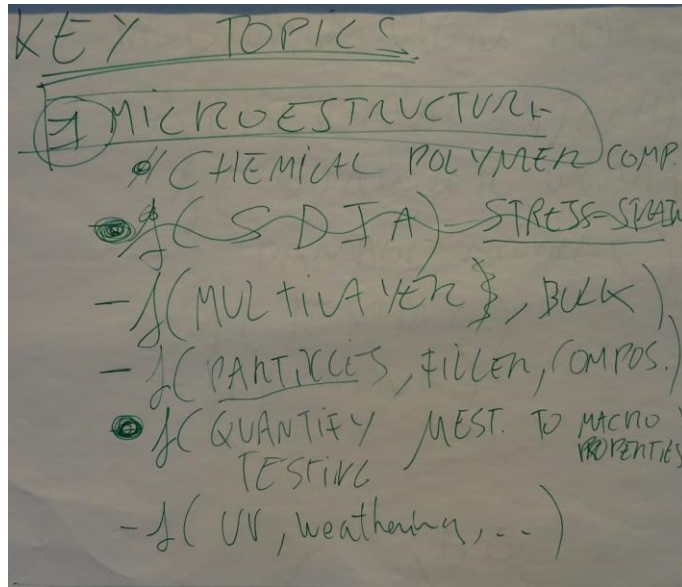 KEY TOPICS
1 MICROESTRUCTURE
// CHEMICAL POLYMER COMP.
f( S D I A ) - STRESS-STRAIN
- f( MULTILAYER, BULK )
- f( PARTICLES, FILLER, COMPOS. )
f( QUANTIFY MEST. TO MACRO
TESTING PROPERTIES
- f( UV, weathering, ... )